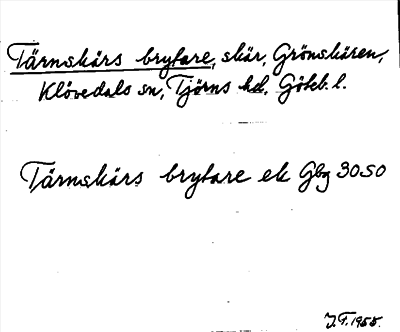 Tärnskärs brytare, skär, Grönskären,
Klövedals sn, Tjörns hd, Göteb. l.
Tärnskärs brytare ek Gbg 30 SO
J.F. 1955.